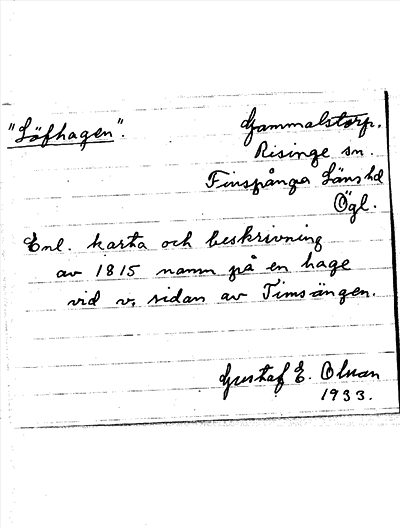 "Löfhagen".
Gammalstorp.
Risinge sn.
Finspånga Läns hd
Ögl.
Enl. karta och beskrivning
av 1815 namn på en hage
vid v. sidan av Timsängen.
Gustaf E. Olson
1933.